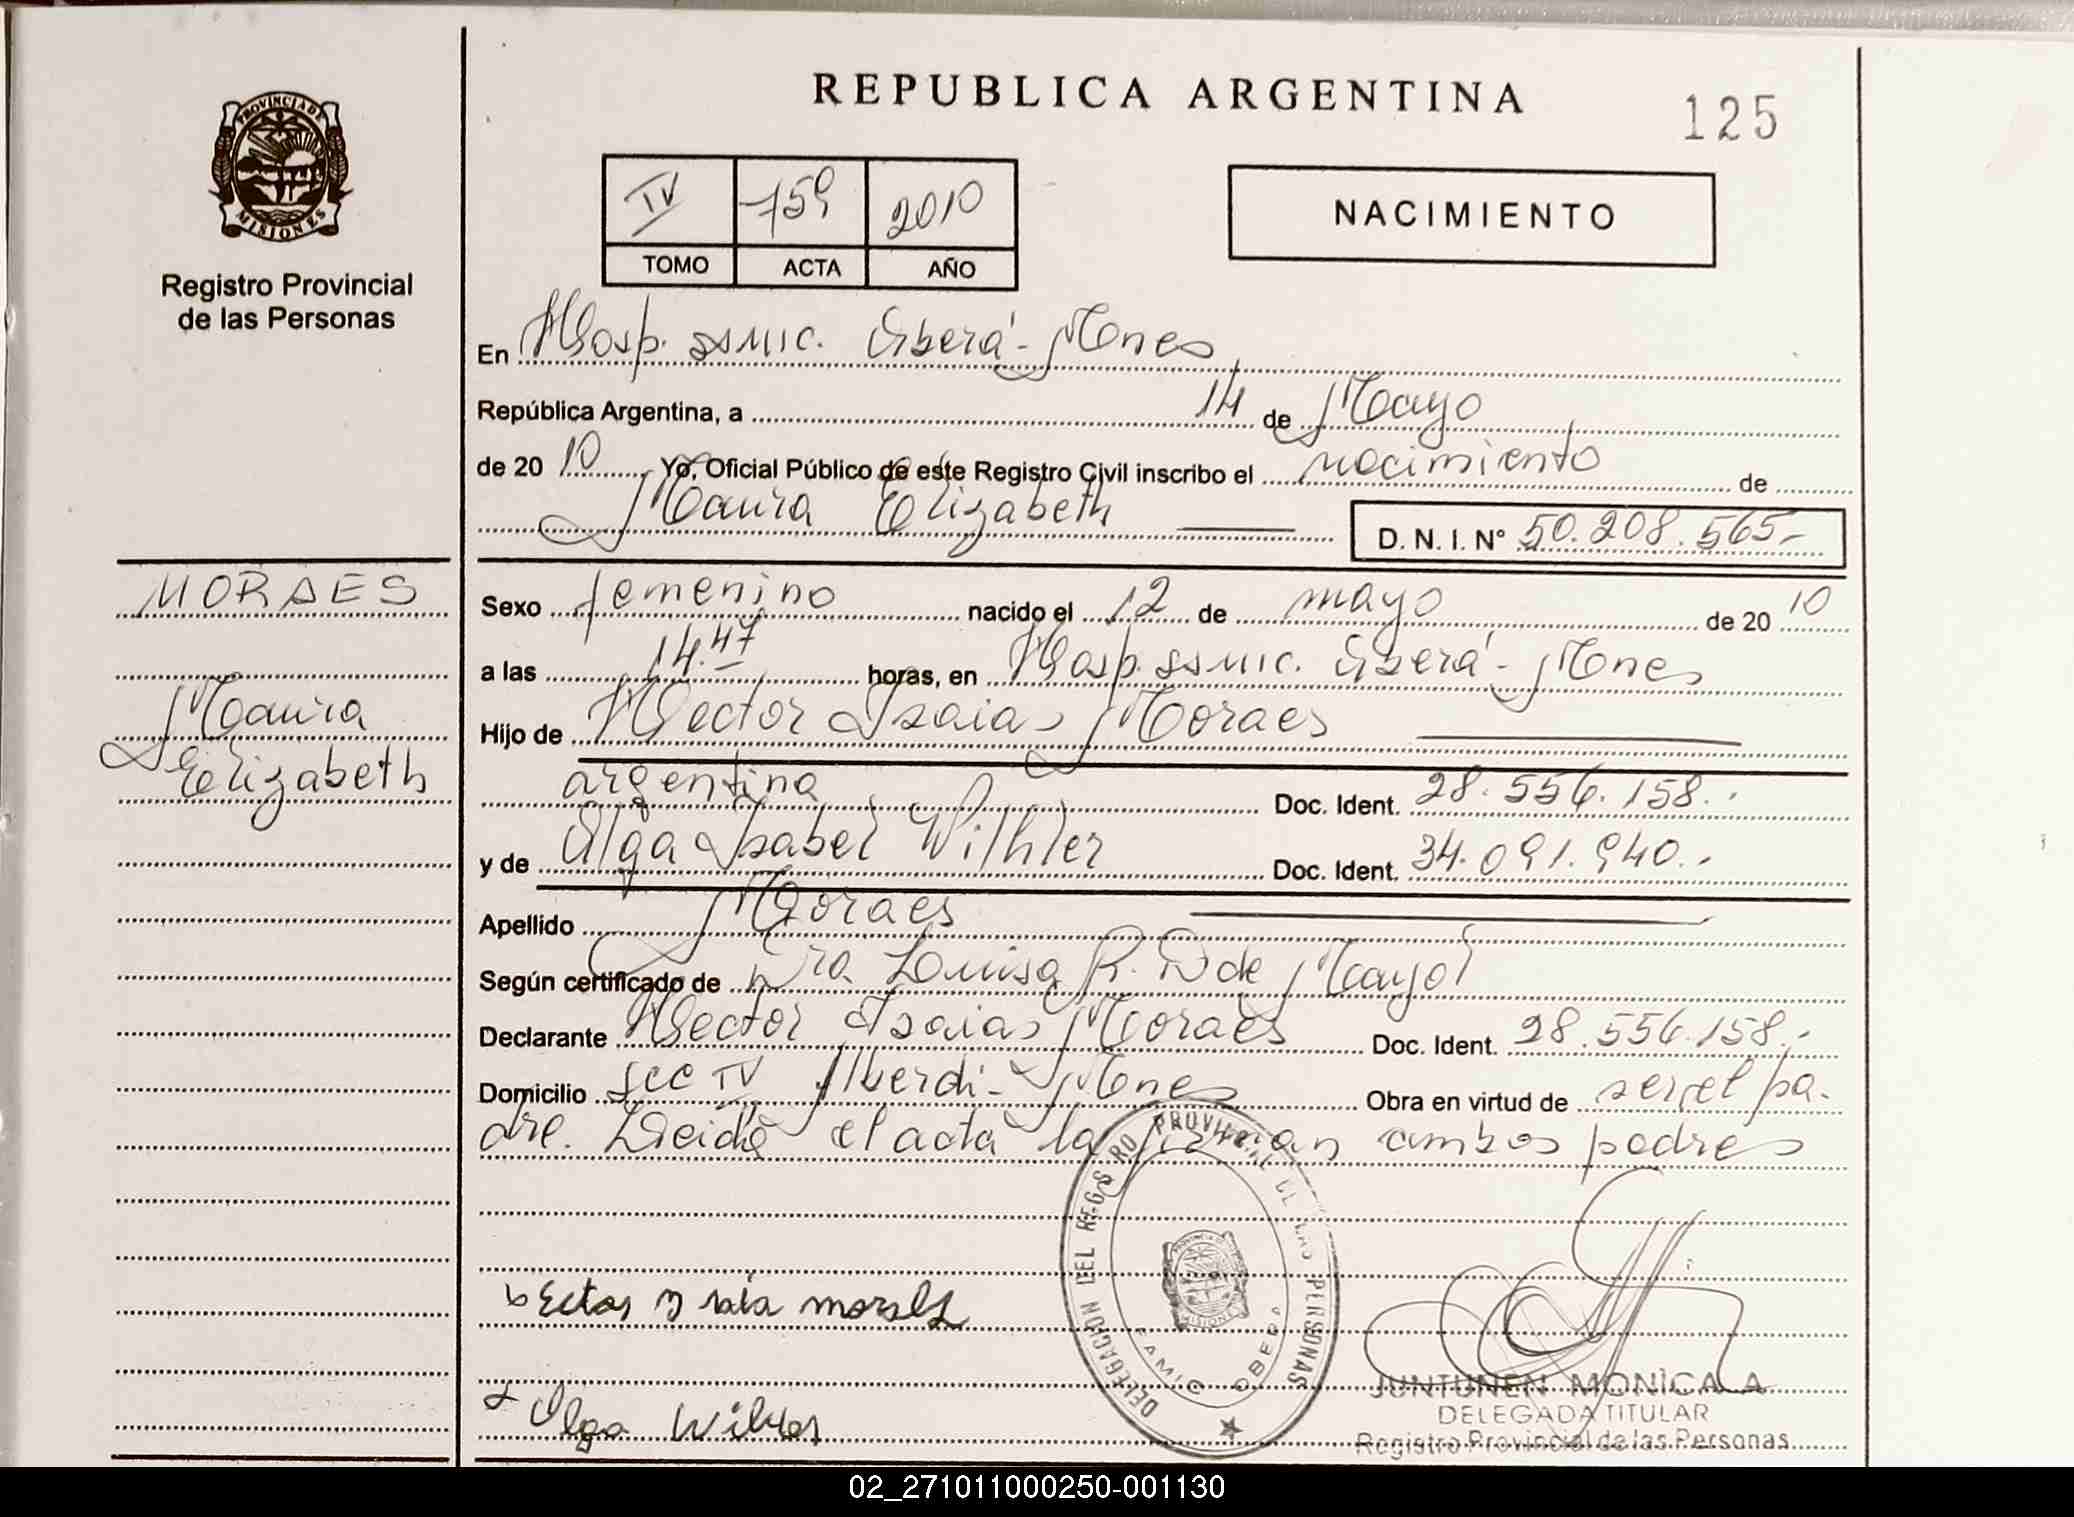 REPUBLICA ARGENTINA
125
PROVINCIA DE
MISIONES
Registro Provincial
de las Personas
IV 759 2010
TOMO ACTA AÑO
NACIMIENTO
En Hosp. ssmic. Oberá - Mnes
República Argentina, a 14 de Mayo
de 20 10 Yo, Oficial Público de este Registro Civil inscribo el nacimiento de
Maura Elizabeth D. N. I. N° 50.208.565.-
MORAES
Maura
Elizabeth
Sexo femenino nacido el 12 de mayo de 20 10
a las 14.47 horas, en Hosp. ssmic. Oberá - Mnes
Hijo de Hector Isaias Moraes
argentina Doc. Ident. 28.556.158.-
y de Olga Isabel Wilhler Doc. Ident. 34.091.940.-
Apellido Moraes
Según certificado de Dra Louisa R. D de Mayol
Declarante Hector Isaias Moraes Doc. Ident. 28.556.158.-
Domicilio secc IV Alberdi - Mnes Obra en virtud de ser el pa-
dre. Leida el acta la firman ambos padres
Olga
DELEGACION DEL REGISTRO PROVINCIAL DE LAS PERSONAS
OBERA
PROVINCIA DE
MISIONES
JUNTUNEN MONICA A.
DELEGADA TITULAR
Registro Provincial de las Personas
02_271011000250-001130